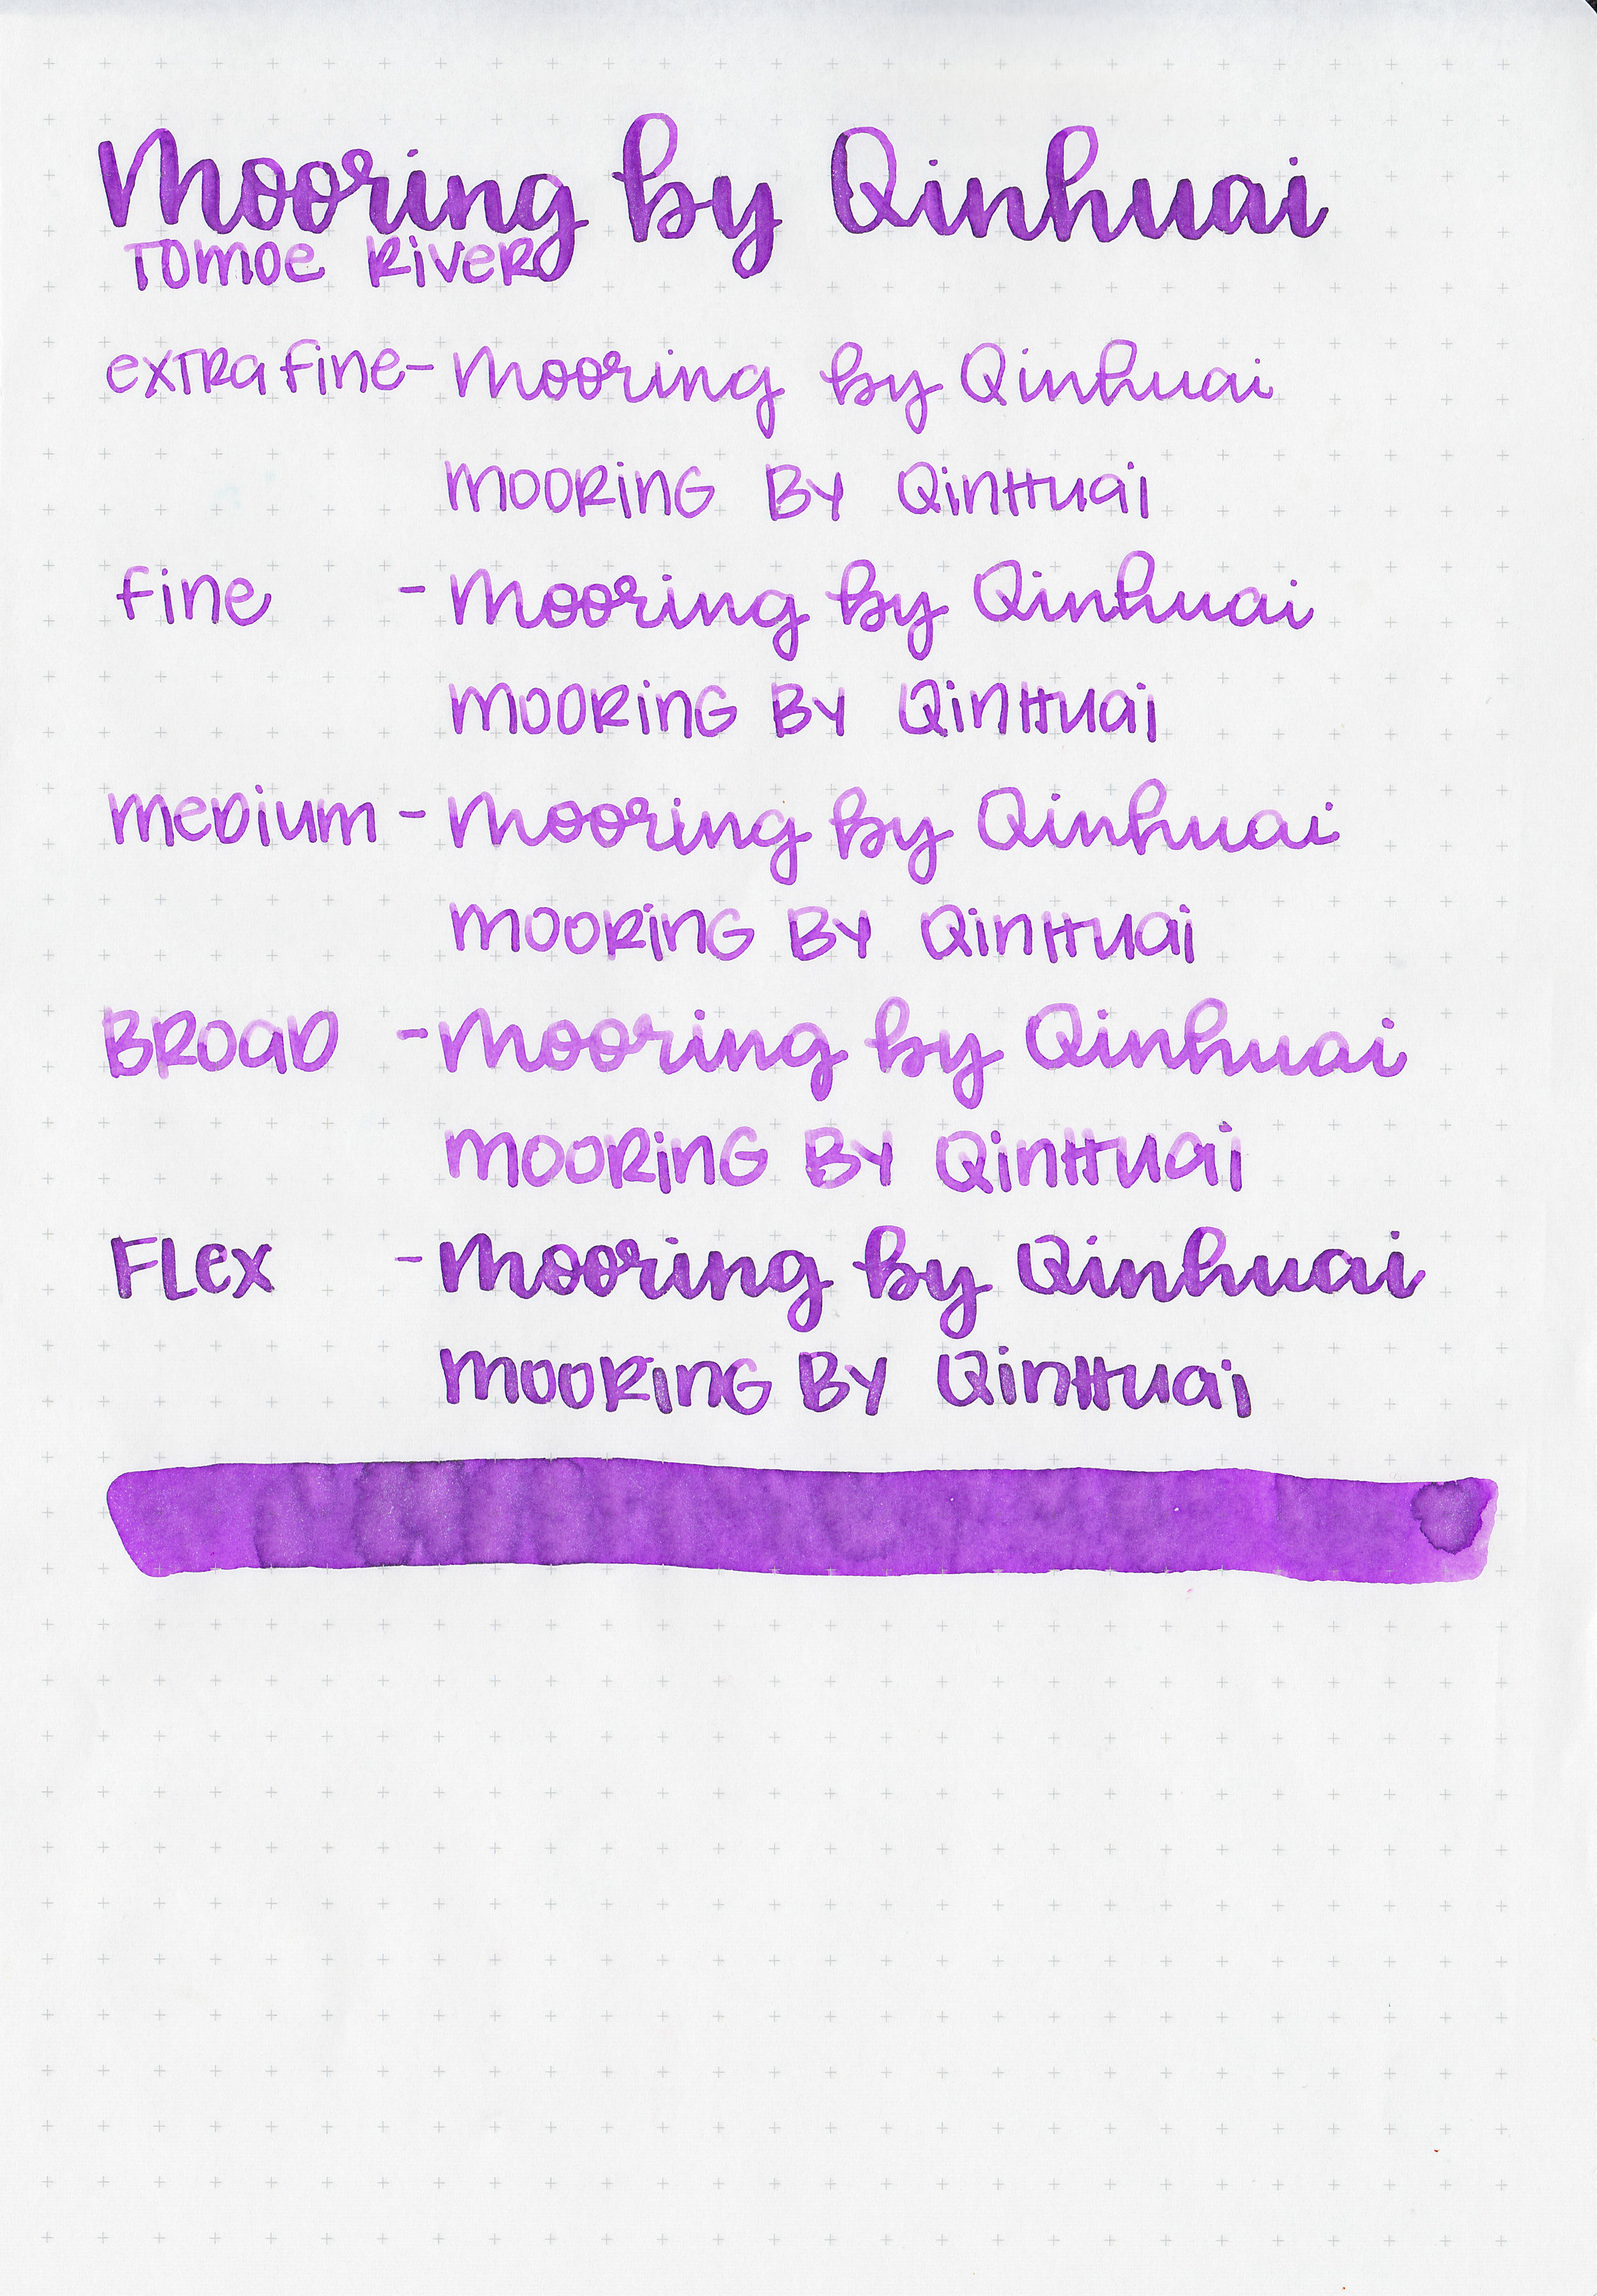 Mooring by Qinhuai
Tomoe River
extra fine - Mooring by Qinhuai
Mooring By Qinhuai
fine - Mooring by Qinhuai
Mooring By Qinhuai
Medium - Mooring by Qinhuai
Mooring By Qinhuai
Broad - Mooring by Qinhuai
Mooring By Qinhuai
Flex - Mooring by Qinhuai
Mooring By Qinhuai